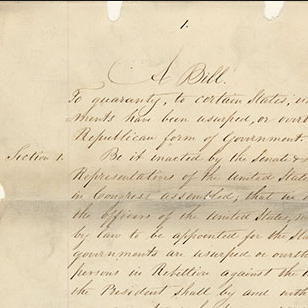 1.
A Bill.
To guaranty, to certain States, w
ments have been usurped, or over
Republican form of Government.
Section 1. Be it enacted by the Senate &
Representatives of the United State
in Congress assembled, that in
the officers of the United States,
by law to be appointed for the Sta
governments are usurped or overth
persons in Rebellion against the
the President shall by and with